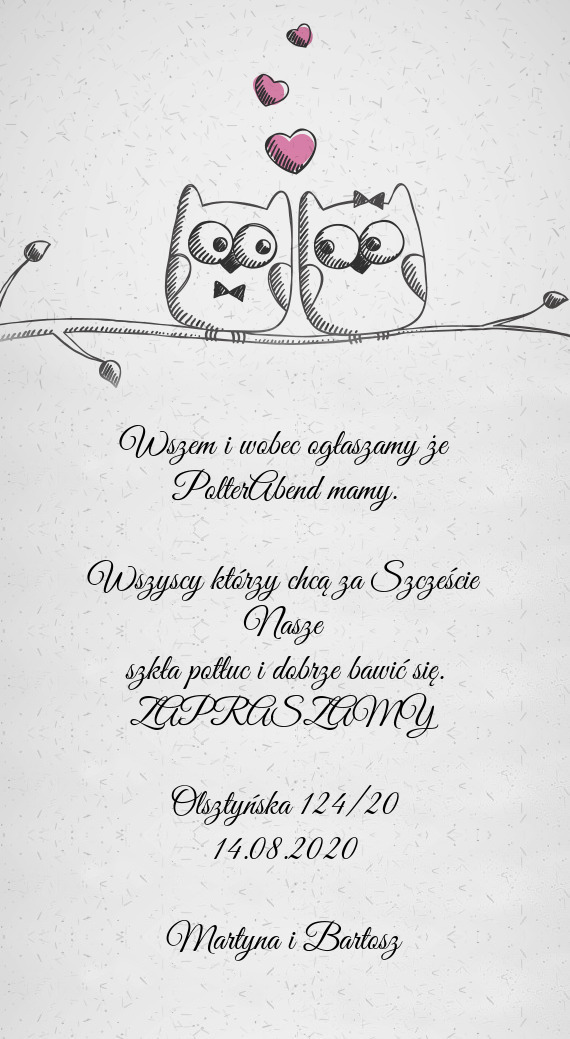 Wszem i wobec ogłaszamy że
PolterAbend mamy.
Wszyscy którzy chcą za Szczeście
Nasze
szkła potłuc i dobrze bawić się.
ZAPRASZAMY
Olsztyńska 124/20
14.08.2020
Martyna i Bartosz